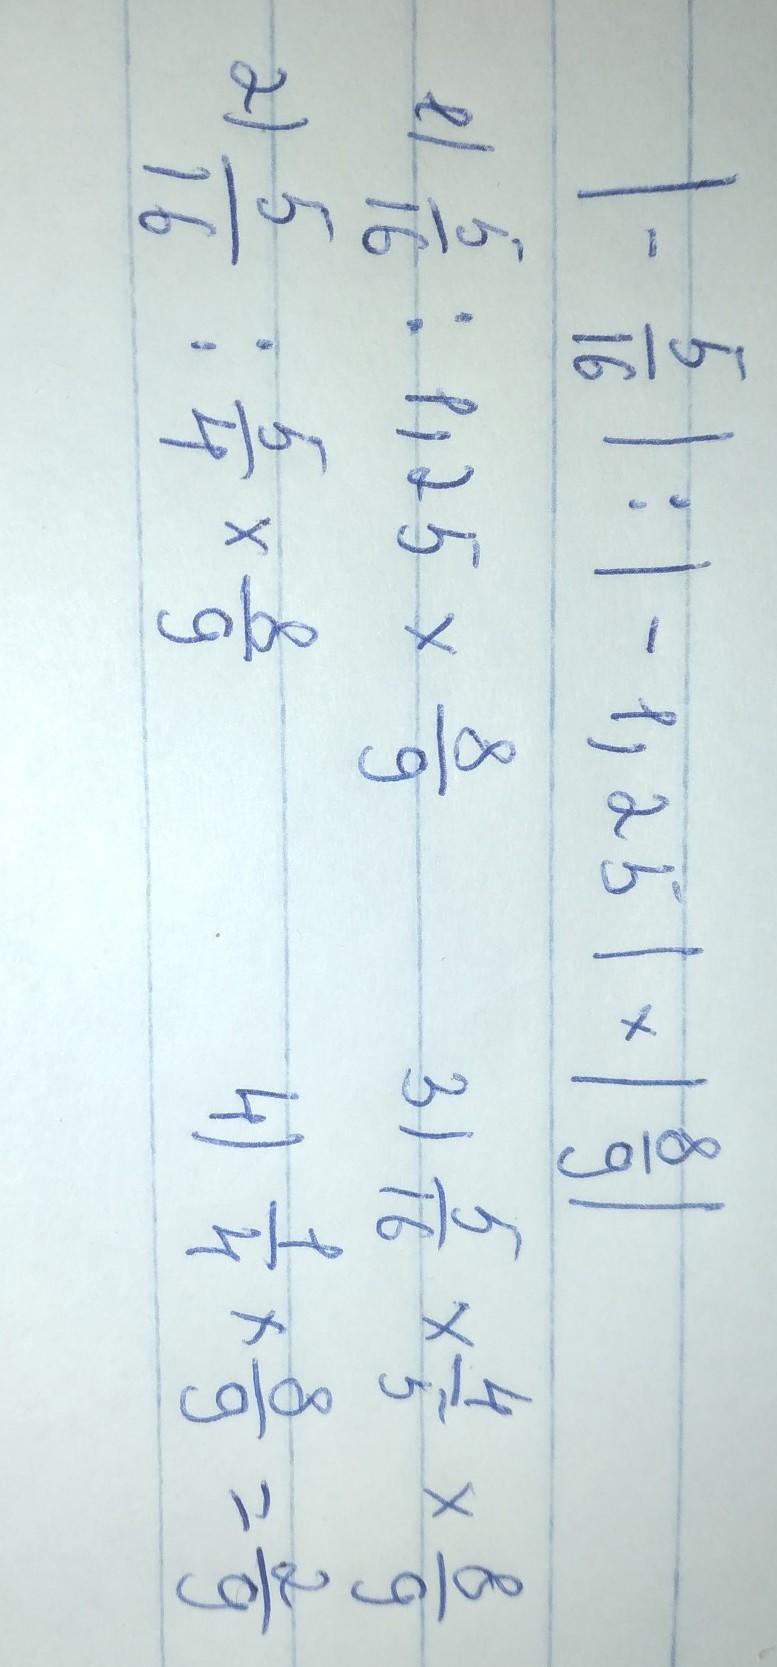 |-5/16| : |-1,25| × |8/9|
1) 5/16 : 1,25 × 8/9
3) 5/16 × 4/5 × 8/9
2) 5/16 : 5/4 × 8/9
4) 1/4 × 8/9 = 2/9